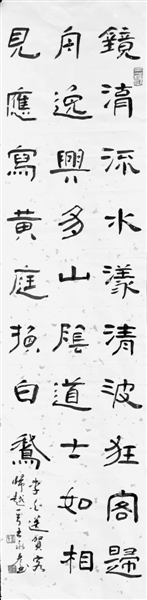 鏡清流水漾清波狂客歸
舟逸興多山陰道士如相
見應寫黃庭換白鵝
李白送賀客
歸越一